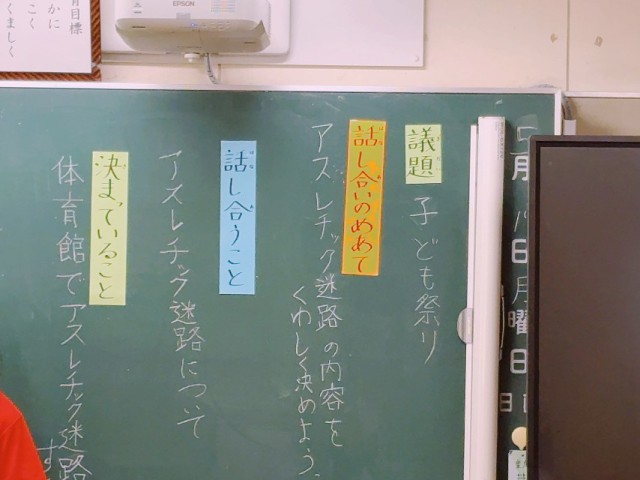 育目標
かに
こく
ましく
EPSON
月
日
月曜日
日
議題
子ども祭り
話し合いのめあて
アスレチック迷路の内容を
くわしく決めよう。
話し合うこと
アスレチック迷路について
決まっていること
体育館でアスレチック迷路
す